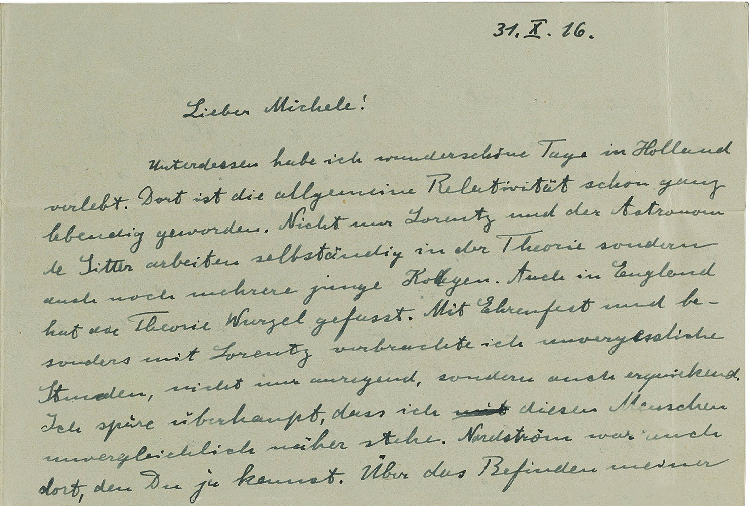 31. X. 16.
Lieber Michele!
Unterdessen habe ich wunderschöne Tage in Holland
verlebt. Dort ist die allgemeine Relativität schon ganz
lebendig geworden. Nicht nur Lorentz und der Astronom
de Sitter arbeiten selbständig in der Theorie sondern
auch noch mehrere junge Kollegen. Auch in England
hat die Theorie Wurzel gefasst. Mit Ehrenfest und be-
sonders mit Lorentz verbrachte ich unvergessliche
Stunden, nicht nur anregend, sondern auch erquickend.
Ich spüre überhaupt, dass ich mit diesen Menschen
unvergleichlich näher stehe. Nordström war auch
dort, den Du ja kennst. Über das Befinden meiner